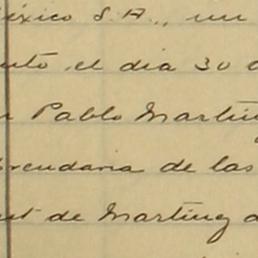 éxico S.A., un
nto el dia 30 d
r Pablo Martin
brendaria de las
ust de Martinez d